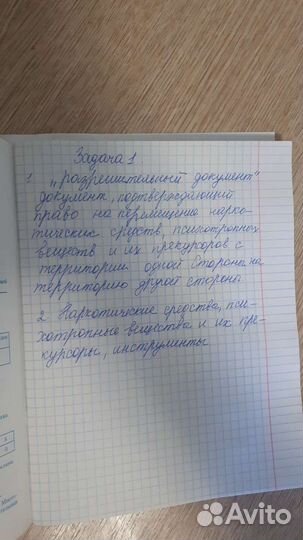 Задача 1
1. "разрешительный документ"
документ, подтверждающий
право на перемещение нарко-
тических средств, психотропных
веществ и их прекурсоров с
территории одной Стороны на
территорию другой стороны
2 Наркотические средства, пси-
хотропные вещества и их пре-
курсоры, инструменты
Avito